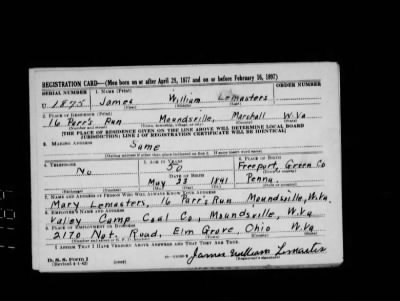 REGISTRATION CARD—(Men born on or after April 28, 1877 and on or before February 16, 1897)
SERIAL NUMBER 1. NAME (Print) ORDER NUMBER
U 1875 James William Lemasters
2. PLACE OF RESIDENCE (Print)
16 Parr's Run Moundsville, Marshall W.Va
(Number and street) (Town, township, village, or city) (County) (State)
[THE PLACE OF RESIDENCE GIVEN ON THE LINE ABOVE WILL DETERMINE LOCAL BOARD
JURISDICTION; LINE 2 OF REGISTRATION CERTIFICATE WILL BE IDENTICAL]
3. MAILING ADDRESS
Same
[Mailing address if other than place indicated on line 2. If same insert word same]
4. TELEPHONE 5. AGE IN YEARS 6. PLACE OF BIRTH
No 50 Freeport, Green Co
DATE OF BIRTH
May 23 1891 Penna.
7. NAME AND ADDRESS OF PERSON WHO WILL ALWAYS KNOW YOUR ADDRESS
Mary Lemasters, 16 Parr's Run Moundsville, W.Va.
8. EMPLOYER'S NAME AND ADDRESS
Valey Camp Coal Co, Moundsville, W.Va
9. PLACE OF EMPLOYMENT OR BUSINESS
2170 Nat. Road, Elm Grove, Ohio W.Va
(Number and street or R. F. D. number) (Town) (County) (State)
I AFFIRM THAT I HAVE VERIFIED ABOVE ANSWERS AND THAT THEY ARE TRUE.
D. S. S. Form 1
(Revised 4-1-42) (over) James William Lemasters